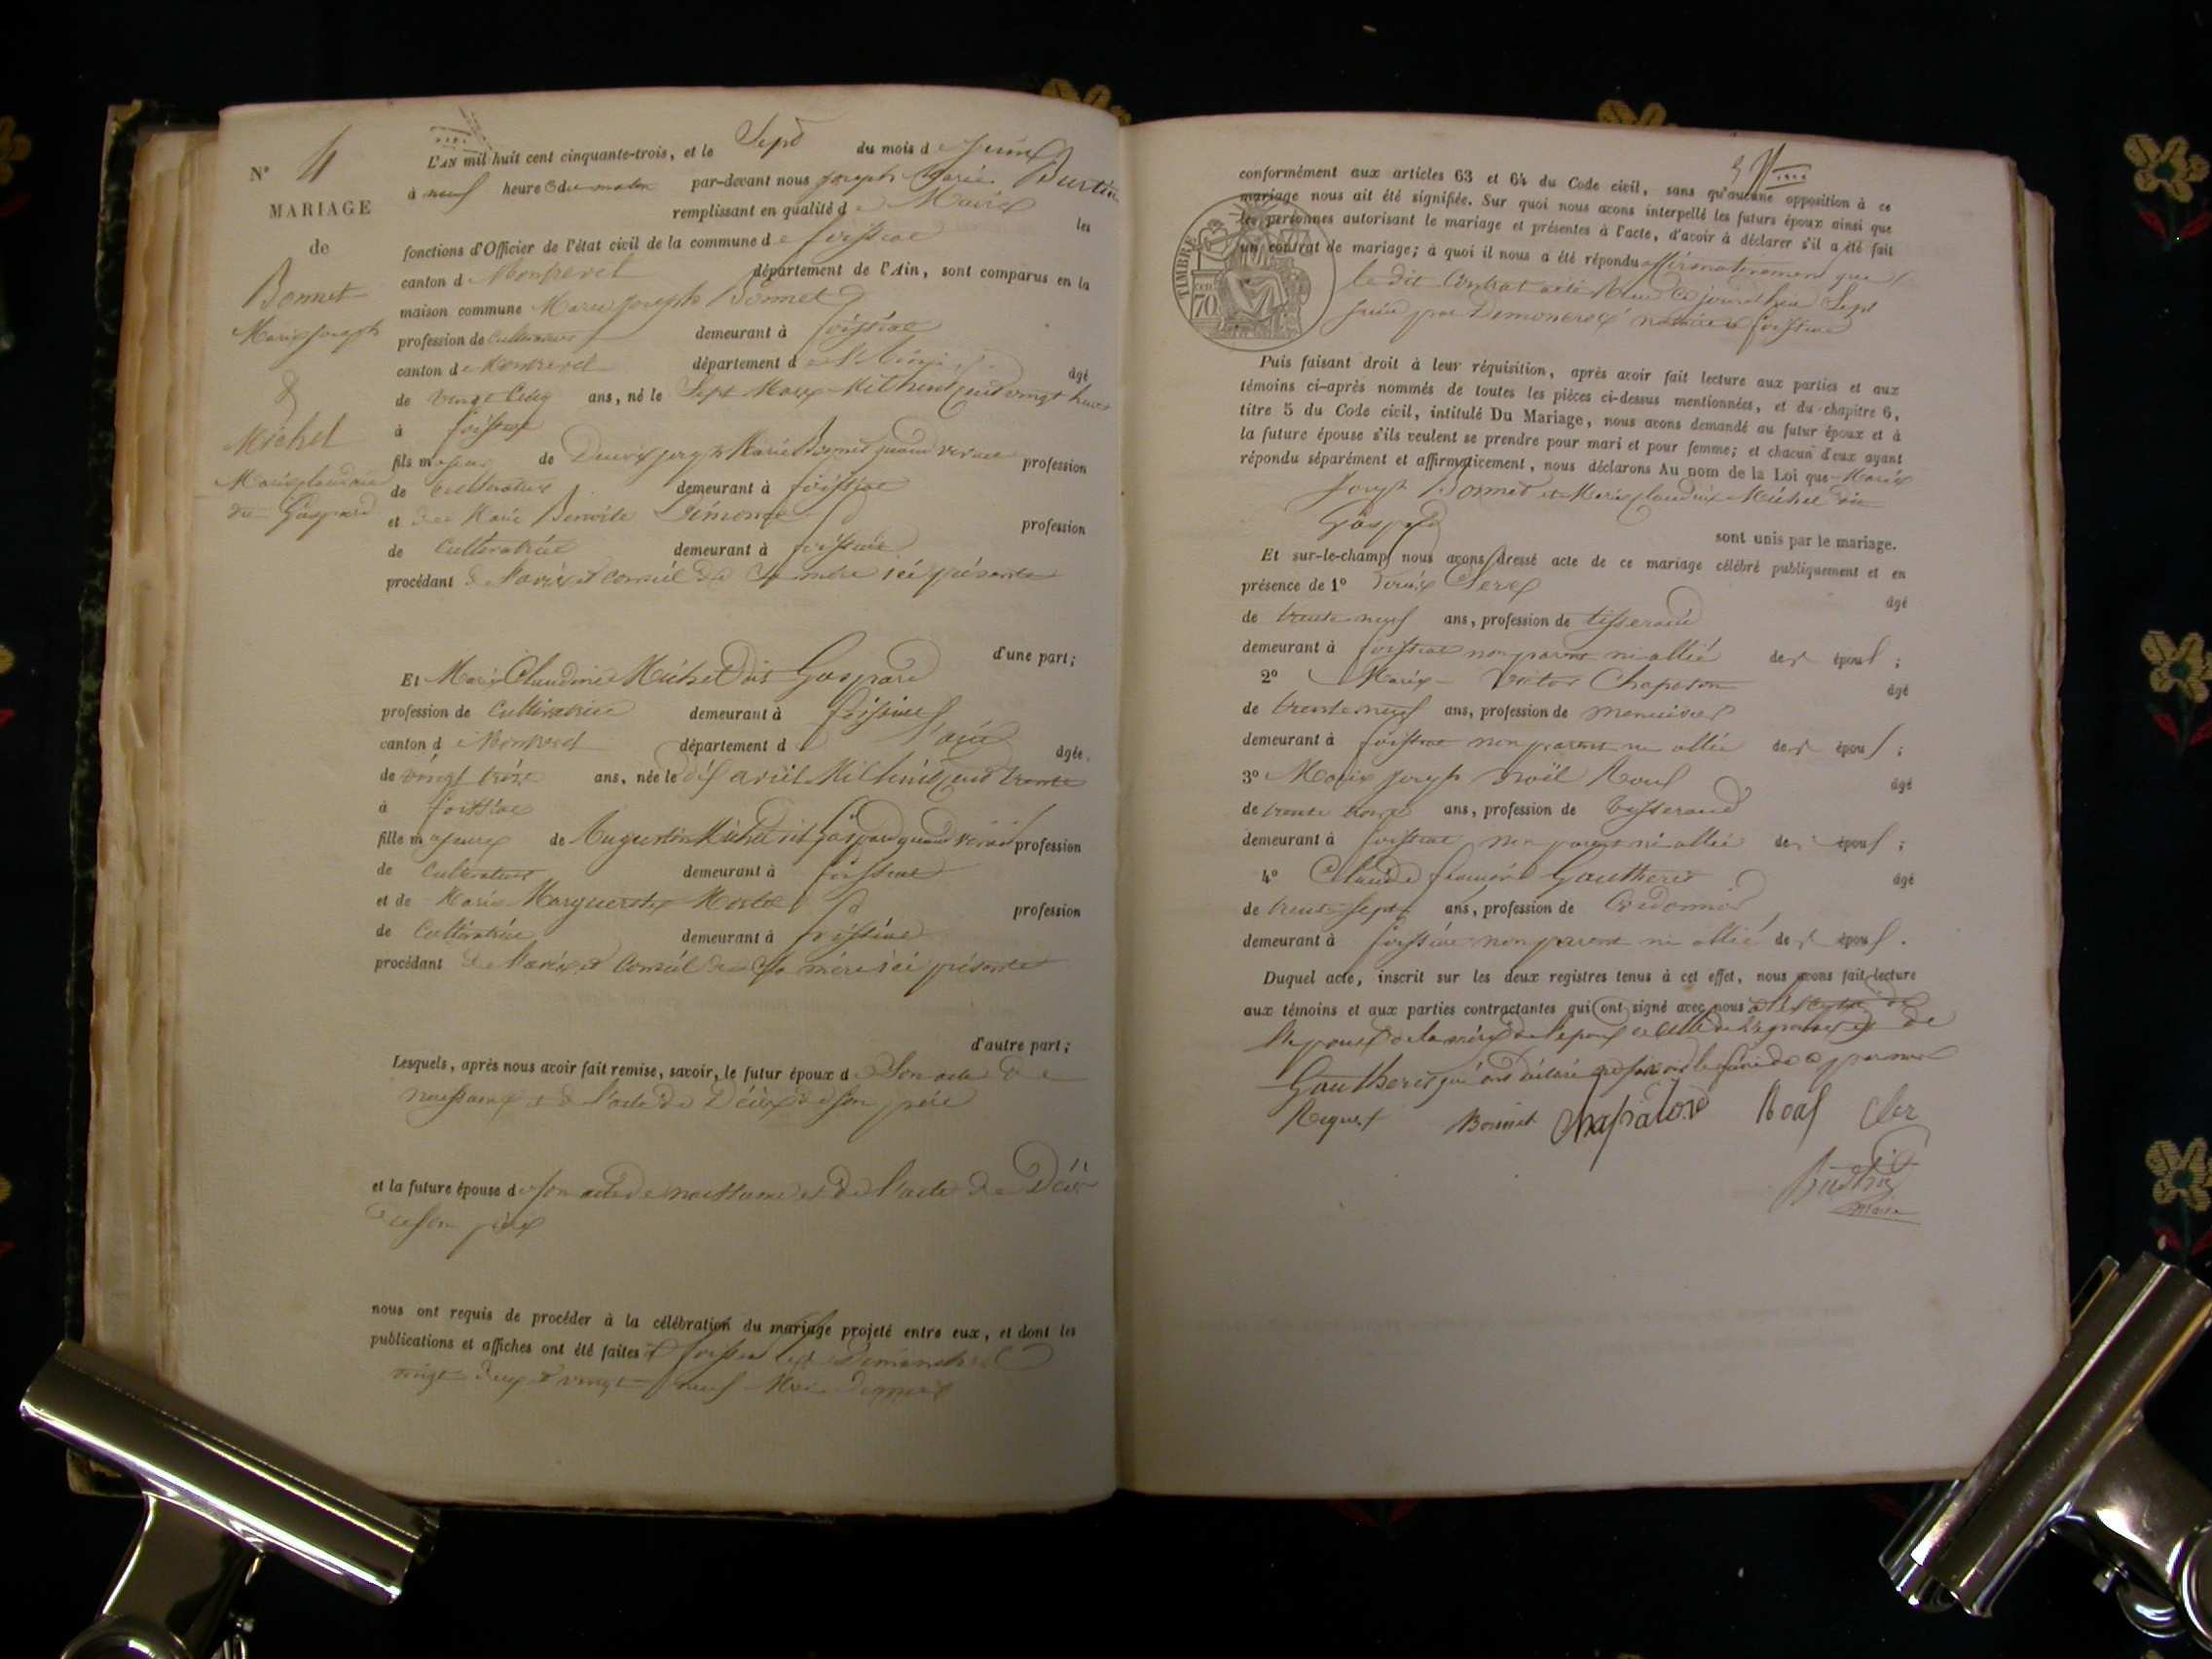 N° 4
MARIAGE
de
Bonnet
Marie Joseph
&
Michel
Marie Claudine
dit Gaspard
L'AN mil huit cent cinquante-trois, et le Sept du mois de Juin
à neuf heures du matin par-devant nous Joseph Marie Burtin
remplissant en qualité de Maire les
fonctions d'Officier de l'état civil de la commune de foissiat
canton de Montrevel département de l'Ain, sont comparus en la
maison commune Marie Joseph Bonnet
profession de Cultivateur demeurant à foissiat
canton de Montrevel département de l'Ain âgé
de vingt Cinq ans, né le Sept Mars Mil huit cent vingt huit
à foissiat
fils majeur de Joseph Marie Bonnet quand vivait profession
de Cultivateur demeurant à foissiat
et de Marie Benoite profession
de Cultivatrice demeurant à foissiat
procédant de l'avis et conseil de Sa mère ici présente
d'une part;
Et Marie Claudine Michel dit Gaspard
profession de Cultivatrice demeurant à foissiat
canton de Montrevel département de l'ain âgée
de vingt trois ans, née le dix avril Mil huit cent trente
à foissiat
fille majeure de Augustin Michel dit Gaspard quand vivait profession
de Cultivateur demeurant à foissiat
et de Marie Marguerite profession
de Cultivatrice demeurant à foissiat
procédant de l'avis et Conseil de Sa mère ici présente
d'autre part;
Lesquels, après nous avoir fait remise, savoir, le futur époux de Son acte de
naissance et de l'acte de Décès de son père
et la future épouse de son acte de naissance et de l'acte de Décès
de son père
nous ont requis de procéder à la célébration du mariage projeté entre eux, et dont les
publications et affiches ont été faites à foissiat les Dimanches
vingt deux & vingt neuf Mai dernier
conformément aux articles 63 et 64 du Code civil, sans qu'aucune opposition à ce
mariage nous ait été signifiée. Sur quoi nous avons interpellé les futurs époux ainsi que
les personnes autorisant le mariage et présentes à l'acte, d'avoir à déclarer s'il a été fait
un contrat de mariage; à quoi il nous a été répondu affirmativement que
le dit Contrat a été reçu Ce jourd'hui Sept
juin par notaire à foissiat
TIMBRE
70
Puis faisant droit à leur réquisition, après avoir fait lecture aux parties et aux
témoins ci-après nommés de toutes les pièces ci-dessus mentionnées, et du chapitre 6,
titre 5 du Code civil, intitulé Du Mariage, nous avons demandé au futur époux et à
la future épouse s'ils veulent se prendre pour mari et pour femme; et chacun d'eux ayant
répondu séparément et affirmativement, nous déclarons Au nom de la Loi que Marie
Joseph Bonnet et Marie Claudine Michel dit
Gaspard
sont unis par le mariage.
Et sur-le-champ nous avons dressé acte de ce mariage célébré publiquement et en
présence de 1° âgé
de trente neuf ans, profession de tisserand
demeurant à foissiat non parent ni allié des époux;
2° Marie Victor Chapeton âgé
de trente neuf ans, profession de menuisier
demeurant à foissiat non parent ni allié des époux;
3° Marie Joseph Noël Roux âgé
de trente trois ans, profession de tisserand
demeurant à foissiat non parent ni allié des époux;
4° Claude Gautheret âgé
de trente sept ans, profession de Cordonnier
demeurant à foissiat non parent ni allié des époux.
Duquel acte, inscrit sur les deux registres tenus à cet effet, nous avons fait lecture
aux témoins et aux parties contractantes qui ont signé avec nous à l'exception de
l'épouse de la mère de l'époux de celle de l'épouse et de
Gautheret qui ont déclaré ne savoir le faire de ce par nous
Requis
Bonnet Roux
Burtin
maire